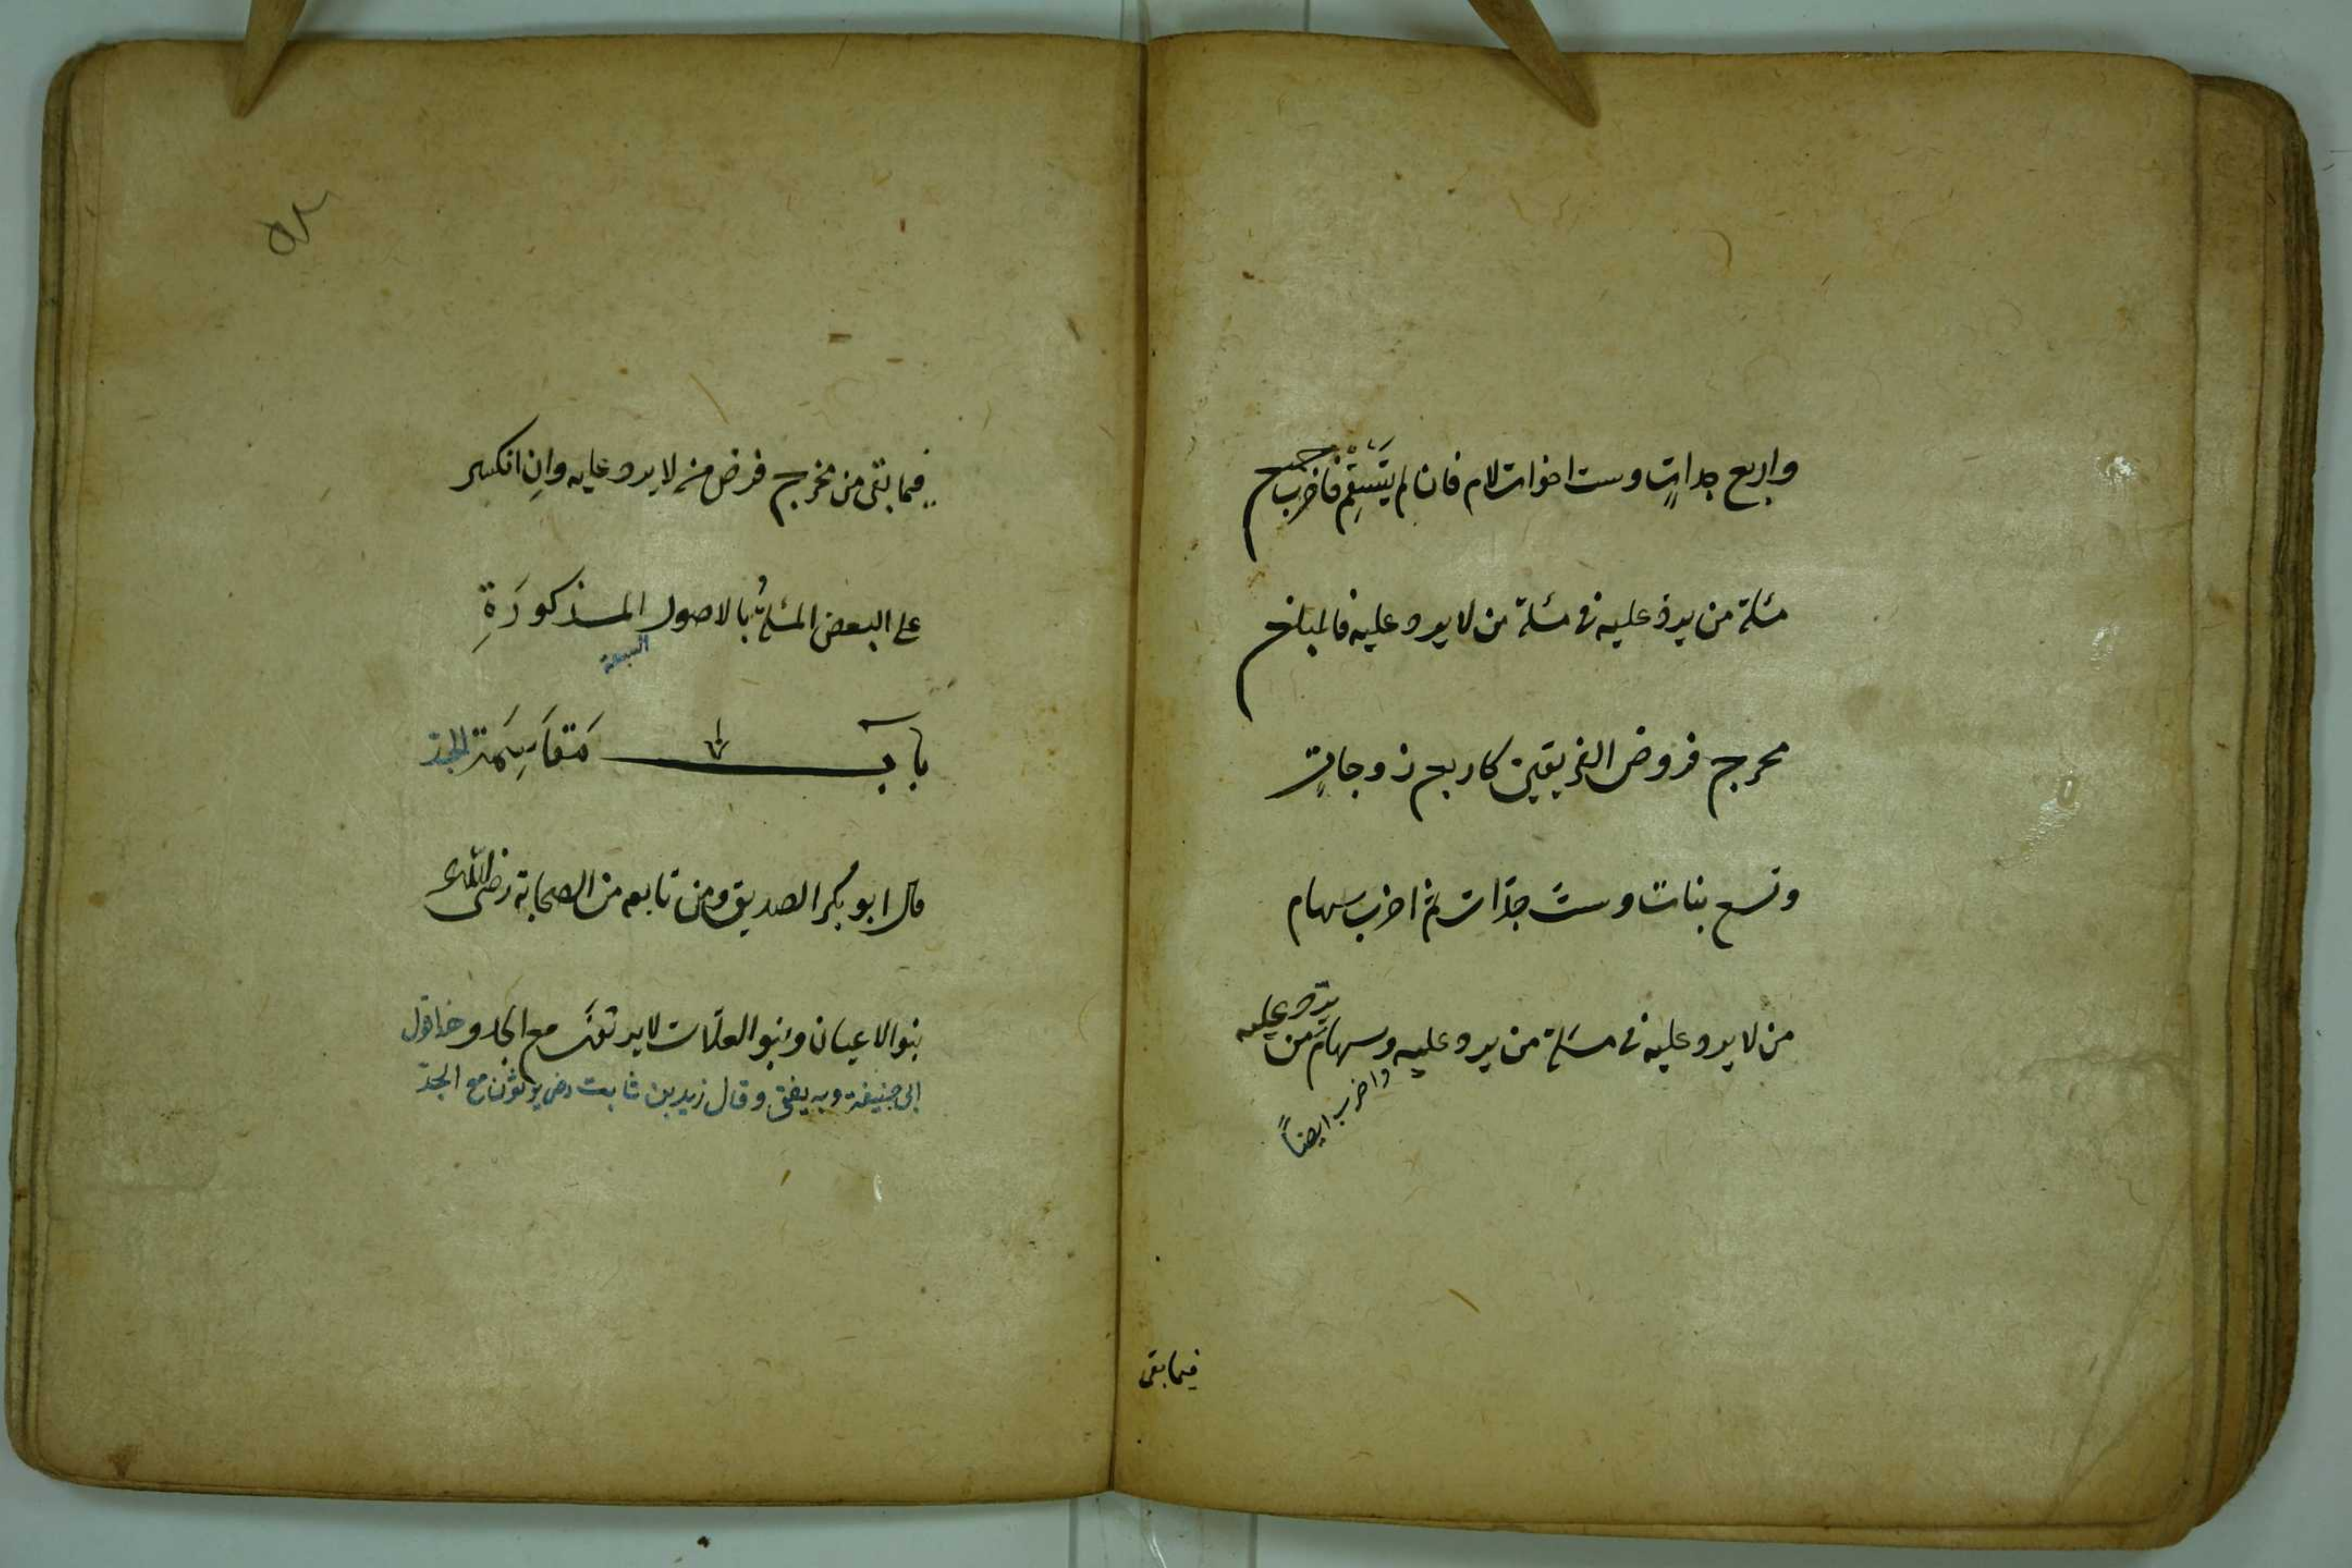 واربع جداتٍ وست اخوات لام فان لم يَسْتَقِم فاضرب جميع
مسٔلة من يرد عليه فى مسٔلة من لا يرد عليه فالمبلغ
مخرج فروض الفريقين كاربع زوجاتٍ
وتسع بنات وستّ جدّات ثم اضرب سهام
من لا يرد عليه فى مسٔلة من يرد عليه وسهام من يردّ عليه
واضرب ايضاً
فيما بقى
فيما بقى من مخرج فرض من لا يرد عليه وانِ انكسر
على البعض المسٔلةُ بالاصول المذكورَةِ
السبعة
بابٓ مَقَاسِمَة الجدّ
قال ابو بكر الصديق ومن تابعه من الصحابة رضى اللّه ع
بنو الاعيان وبنو العلّات لا يرثونَ مع الجد وهذا قول
ابى حنيفة وبه يفتى وقال زيد بن ثابت رض يرثون مع الجدّ